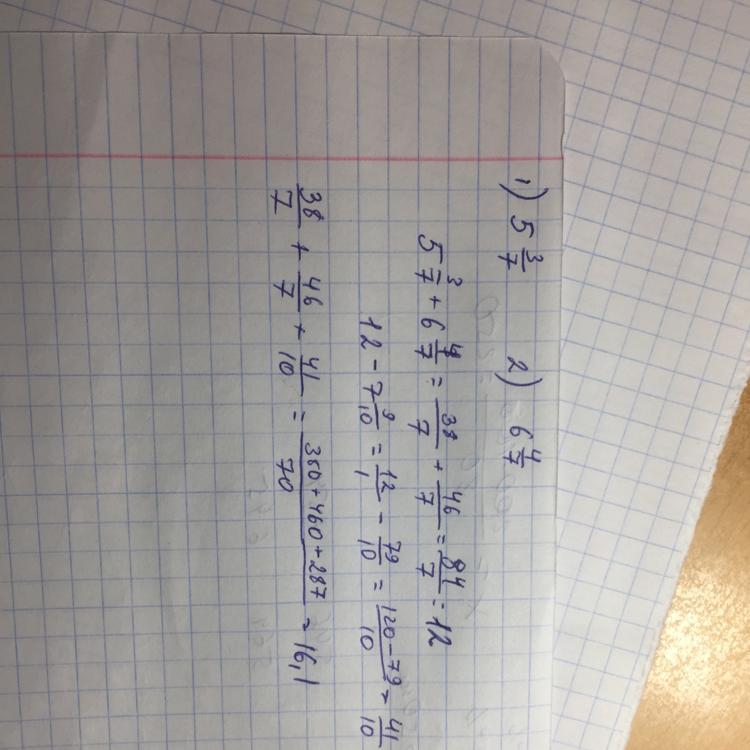 1) 5 3/7 2) 6 4/7
5 3/7 + 6 4/7 = 38/7 + 46/7 = 84/7 = 12
12 - 7 9/10 = 12/1 - 79/10 = 120-79/10 = 41/10
38/7 + 46/7 + 41/10 = 380+460+287/70 = 16,1